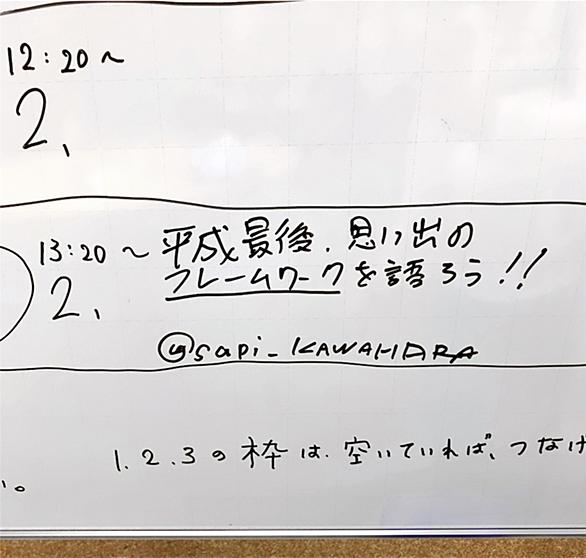 12:20～
2、
13:20～ 平成最後、思い出の
2、 フレームワークを語ろう!!
@sapi_KAWAHARA
1.2.3の枠は、空いていれば、つなげ
い。